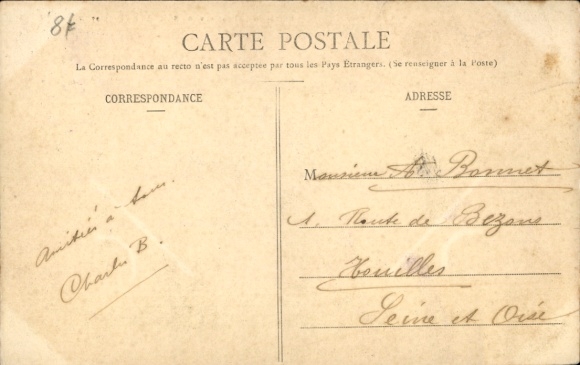 8f
CARTE POSTALE
La Correspondance au recto n'est pas acceptée par tous les Pays Étrangers. (Se renseigner à la Poste)
CORRESPONDANCE
Amitiés à tous.
Charles B.
ADRESSE
Monsieur A. Bonnet
1. Route de Bezons
Houilles
Seine et Oise